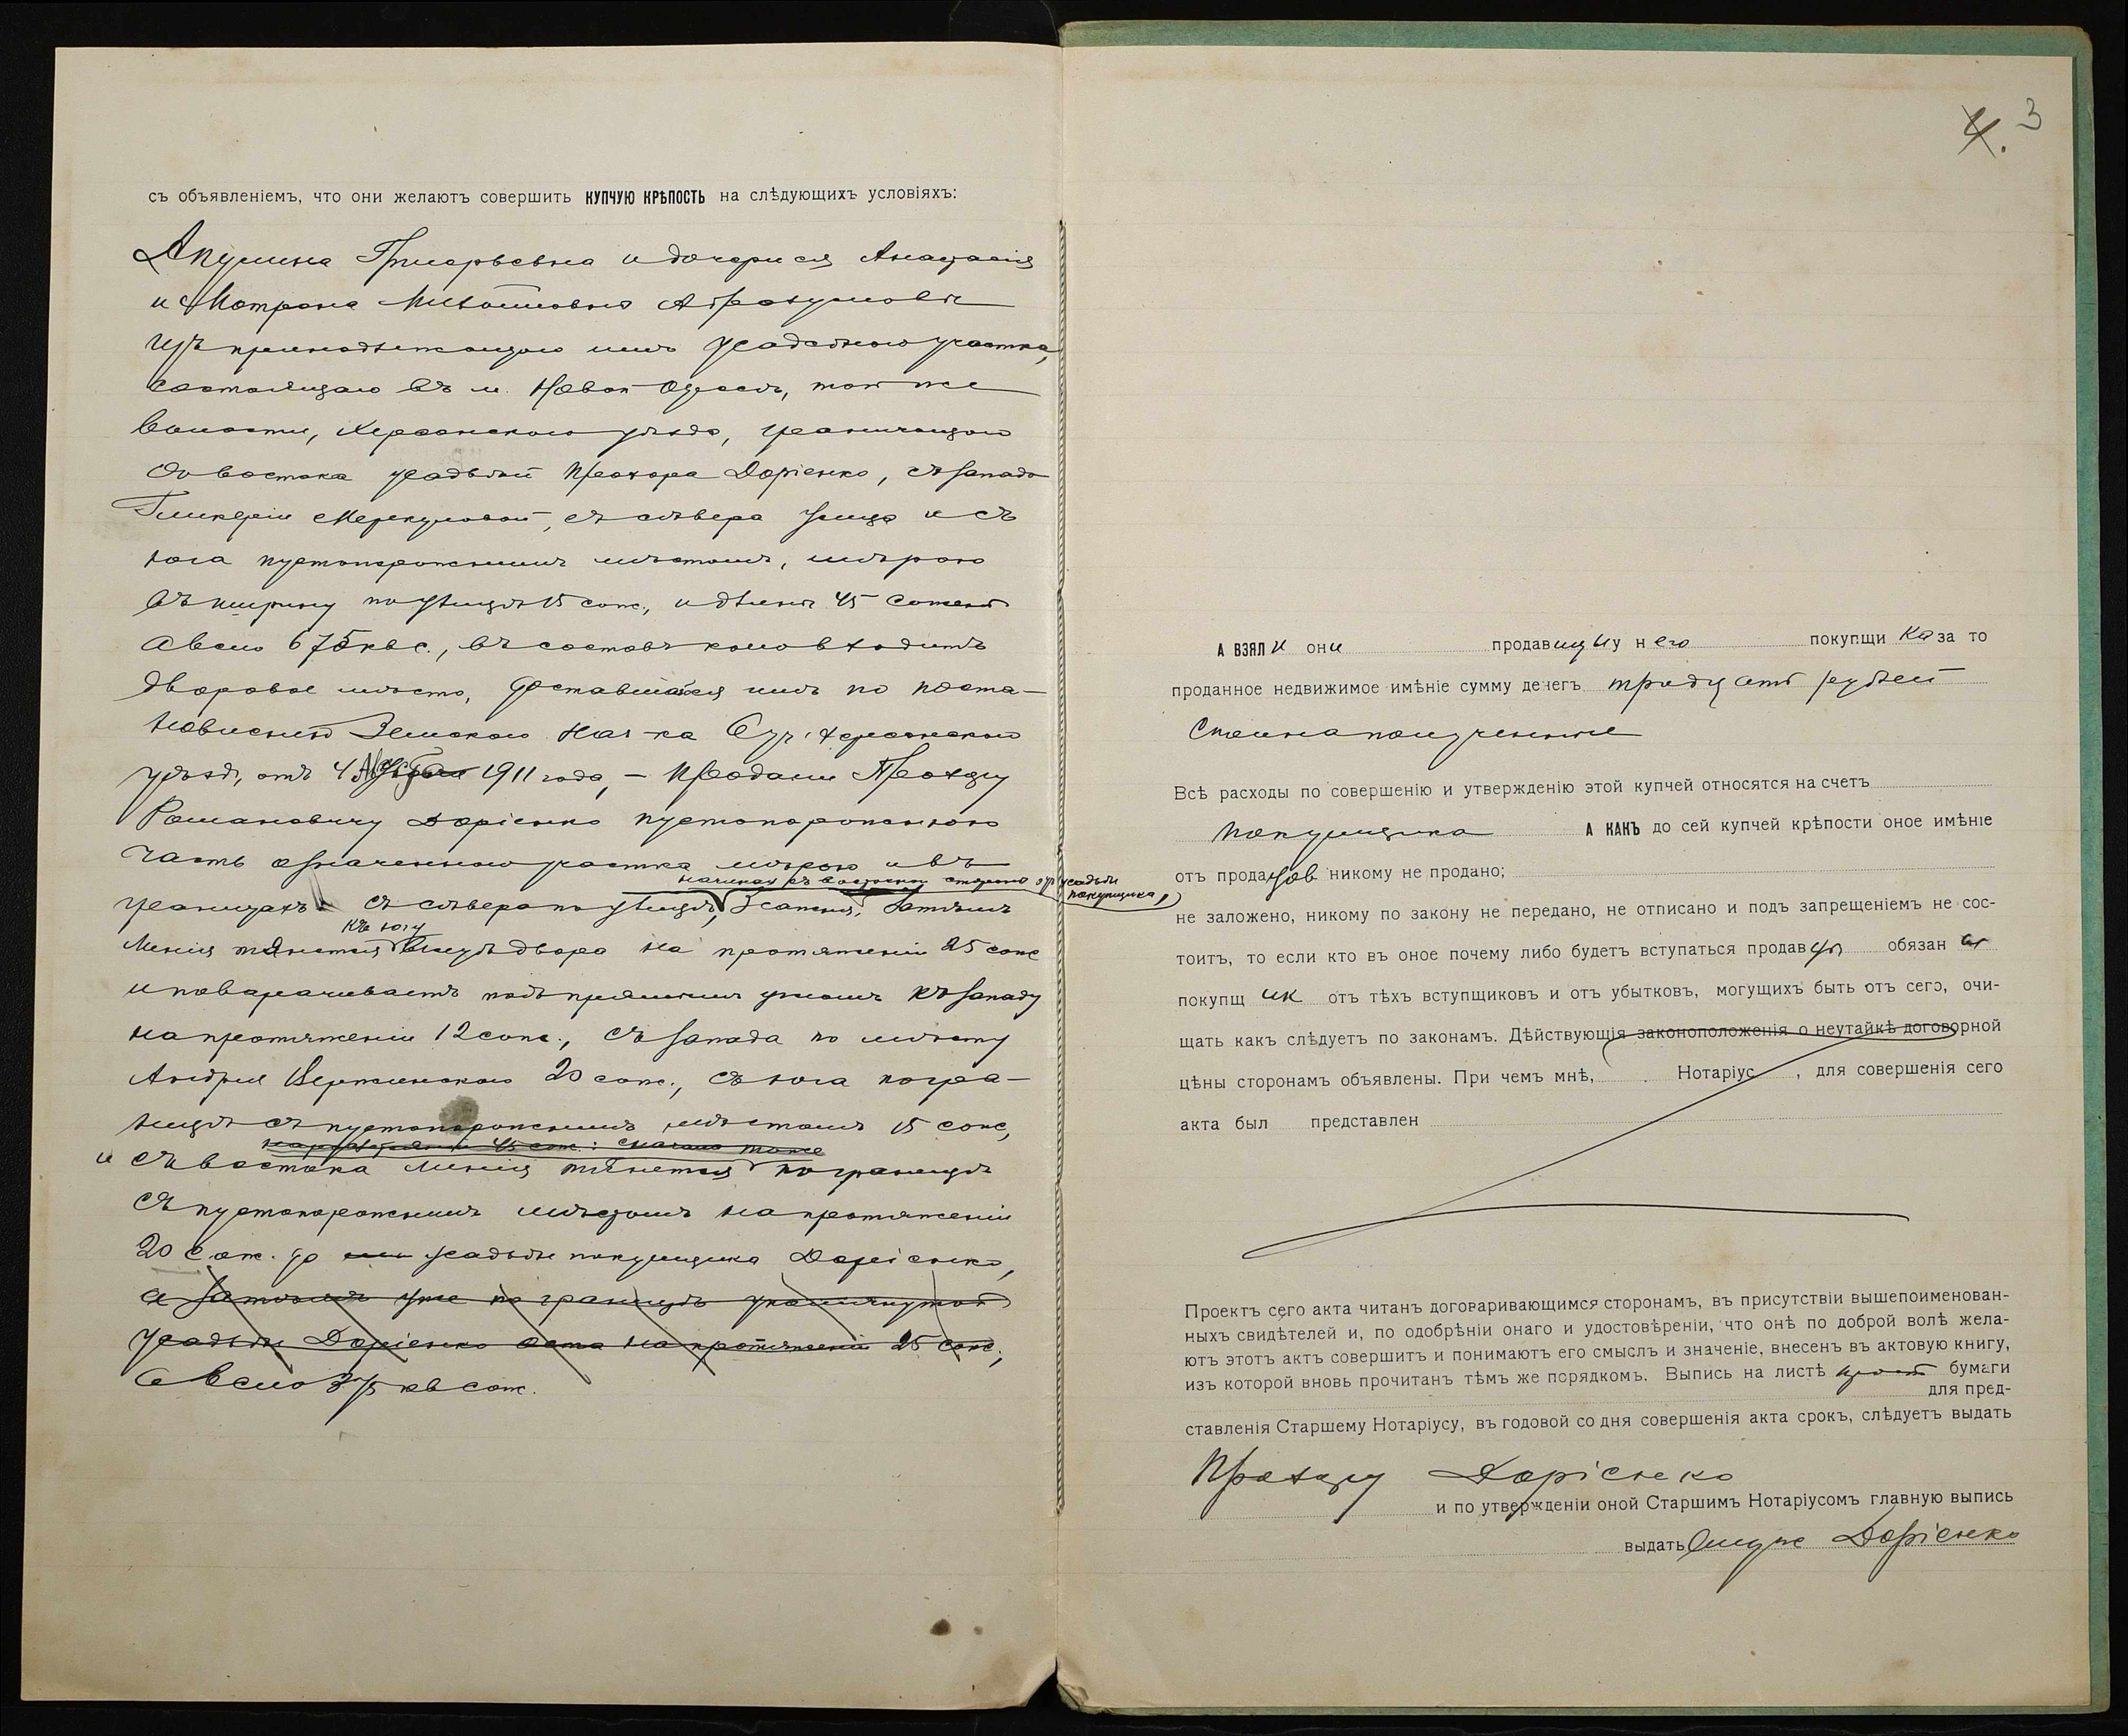 съ объявленіемъ, что они желаютъ совершить КУПЧУЮ КРѢПОСТЬ на слѣдующихъ условіяхъ:
Акулина Григорьевна и дочери ея Анастасія
и Мотрона
изъ принадлежащаго имъ усадебнаго участка,
состоящаго въ м. Новой Одессѣ, той же
волости, Херсонскаго уѣзда, граничащаго
отъ востока усадьбой Прохора Доріенко, съ запада
Гликеріи Меркуловой, съ сѣвера улица и съ
юга пустопорожнимъ мѣстомъ, мѣрою
въ ширину по улицѣ 15 саж., и длины 45 сажень
а всего 675 кв с., въ составъ коего входитъ
дворовое мѣсто, доставшійся имъ по поста-
новленію Земскаго Нач-ка 6 уч. Херсонскаго
уѣзд., отъ 4 1911 года, — продали Прохору
Романовичу Доріенко пустопорожнюю
часть означеннаго участка мѣрою и въ
начиная съ восточной стороны отъ усадьбы
покупщика,
границахъ: съ сѣвера по улицѣ, 3 сажня, затѣмъ
къ югу
линія тянется вглубь двора на протяженіи 25 саж
и поварачиваетъ подъ прямымъ угломъ къ западу
на протяженіи 12 саж., съ запада по мѣсту
Андрея 20 саж., съ юга погра-
ницѣ съ пустопорожнимъ мѣстомъ 15 саж,
и съ востока линія тянется по границѣ
съ пустопорожнимъ мѣстомъ на протяженіи
20 саж. до усадьбы покупщика Доріенко,
а затѣмъ уже по границѣ упомянутой
усадьбы Доріенко на протяженіи 25 саж.,
а всего 375 кв саж.
4. 3
А ВЗЯЛи они продавицы у него покупщика за то
проданное недвижимое имѣніе сумму денегъ тридцать рублей
сполна полученные
Всѣ расходы по совершенію и утвержденію этой купчей относятся на счетъ
покупщика А КАКЪ до сей купчей крѣпости оное имѣніе
отъ продацов никому не продано;
не заложено, никому по закону не передано, не отписано и подъ запрещеніемъ не сос-
тоитъ, то если кто въ оное почему либо будетъ вступаться продавцы обязан ы
покупщ ик отъ тѣхъ вступщиковъ и отъ убытковъ, могущихъ быть отъ сего, очи-
щать какъ слѣдуетъ по законамъ. Дѣйствующія законоположенія о неутайкѣ договорной
цѣны сторонамъ объявлены. При чемъ мнѣ, Нотаріус , для совершенія сего
акта был представлен
Проектъ сего акта читанъ договаривающимся сторонамъ, въ присутствіи вышепоименован-
ныхъ свидѣтелей и, по одобрѣніи онаго и удостовѣреніи, что онѣ по доброй волѣ жела-
ютъ этотъ актъ совершит и понимаютъ его смыслъ и значеніе, внесенъ въ актовую книгу,
изъ которой вновь прочитанъ тѣмъ же порядкомъ. Выпись на листѣ прост бумаги
для пред-
ставленія Старшему Нотаріусу, въ годовой со дня совершенія акта срокъ, слѣдуетъ выдать
Прохору Доріенко
и по утвержденіи оной Старшимъ Нотаріусомъ главную выпись
выдать ему же Доріенко